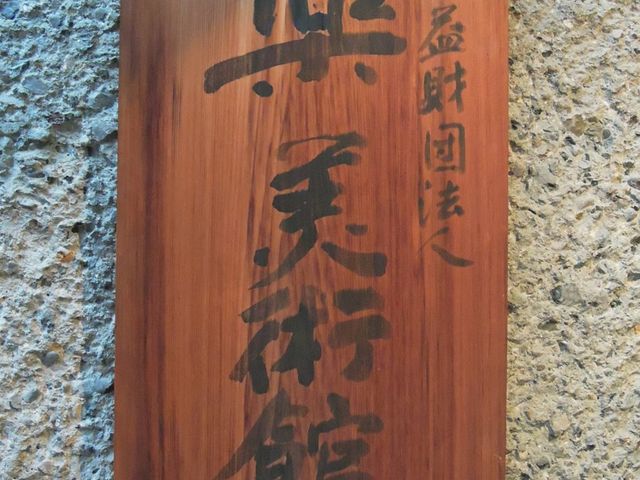 益財団法人
樂美術館